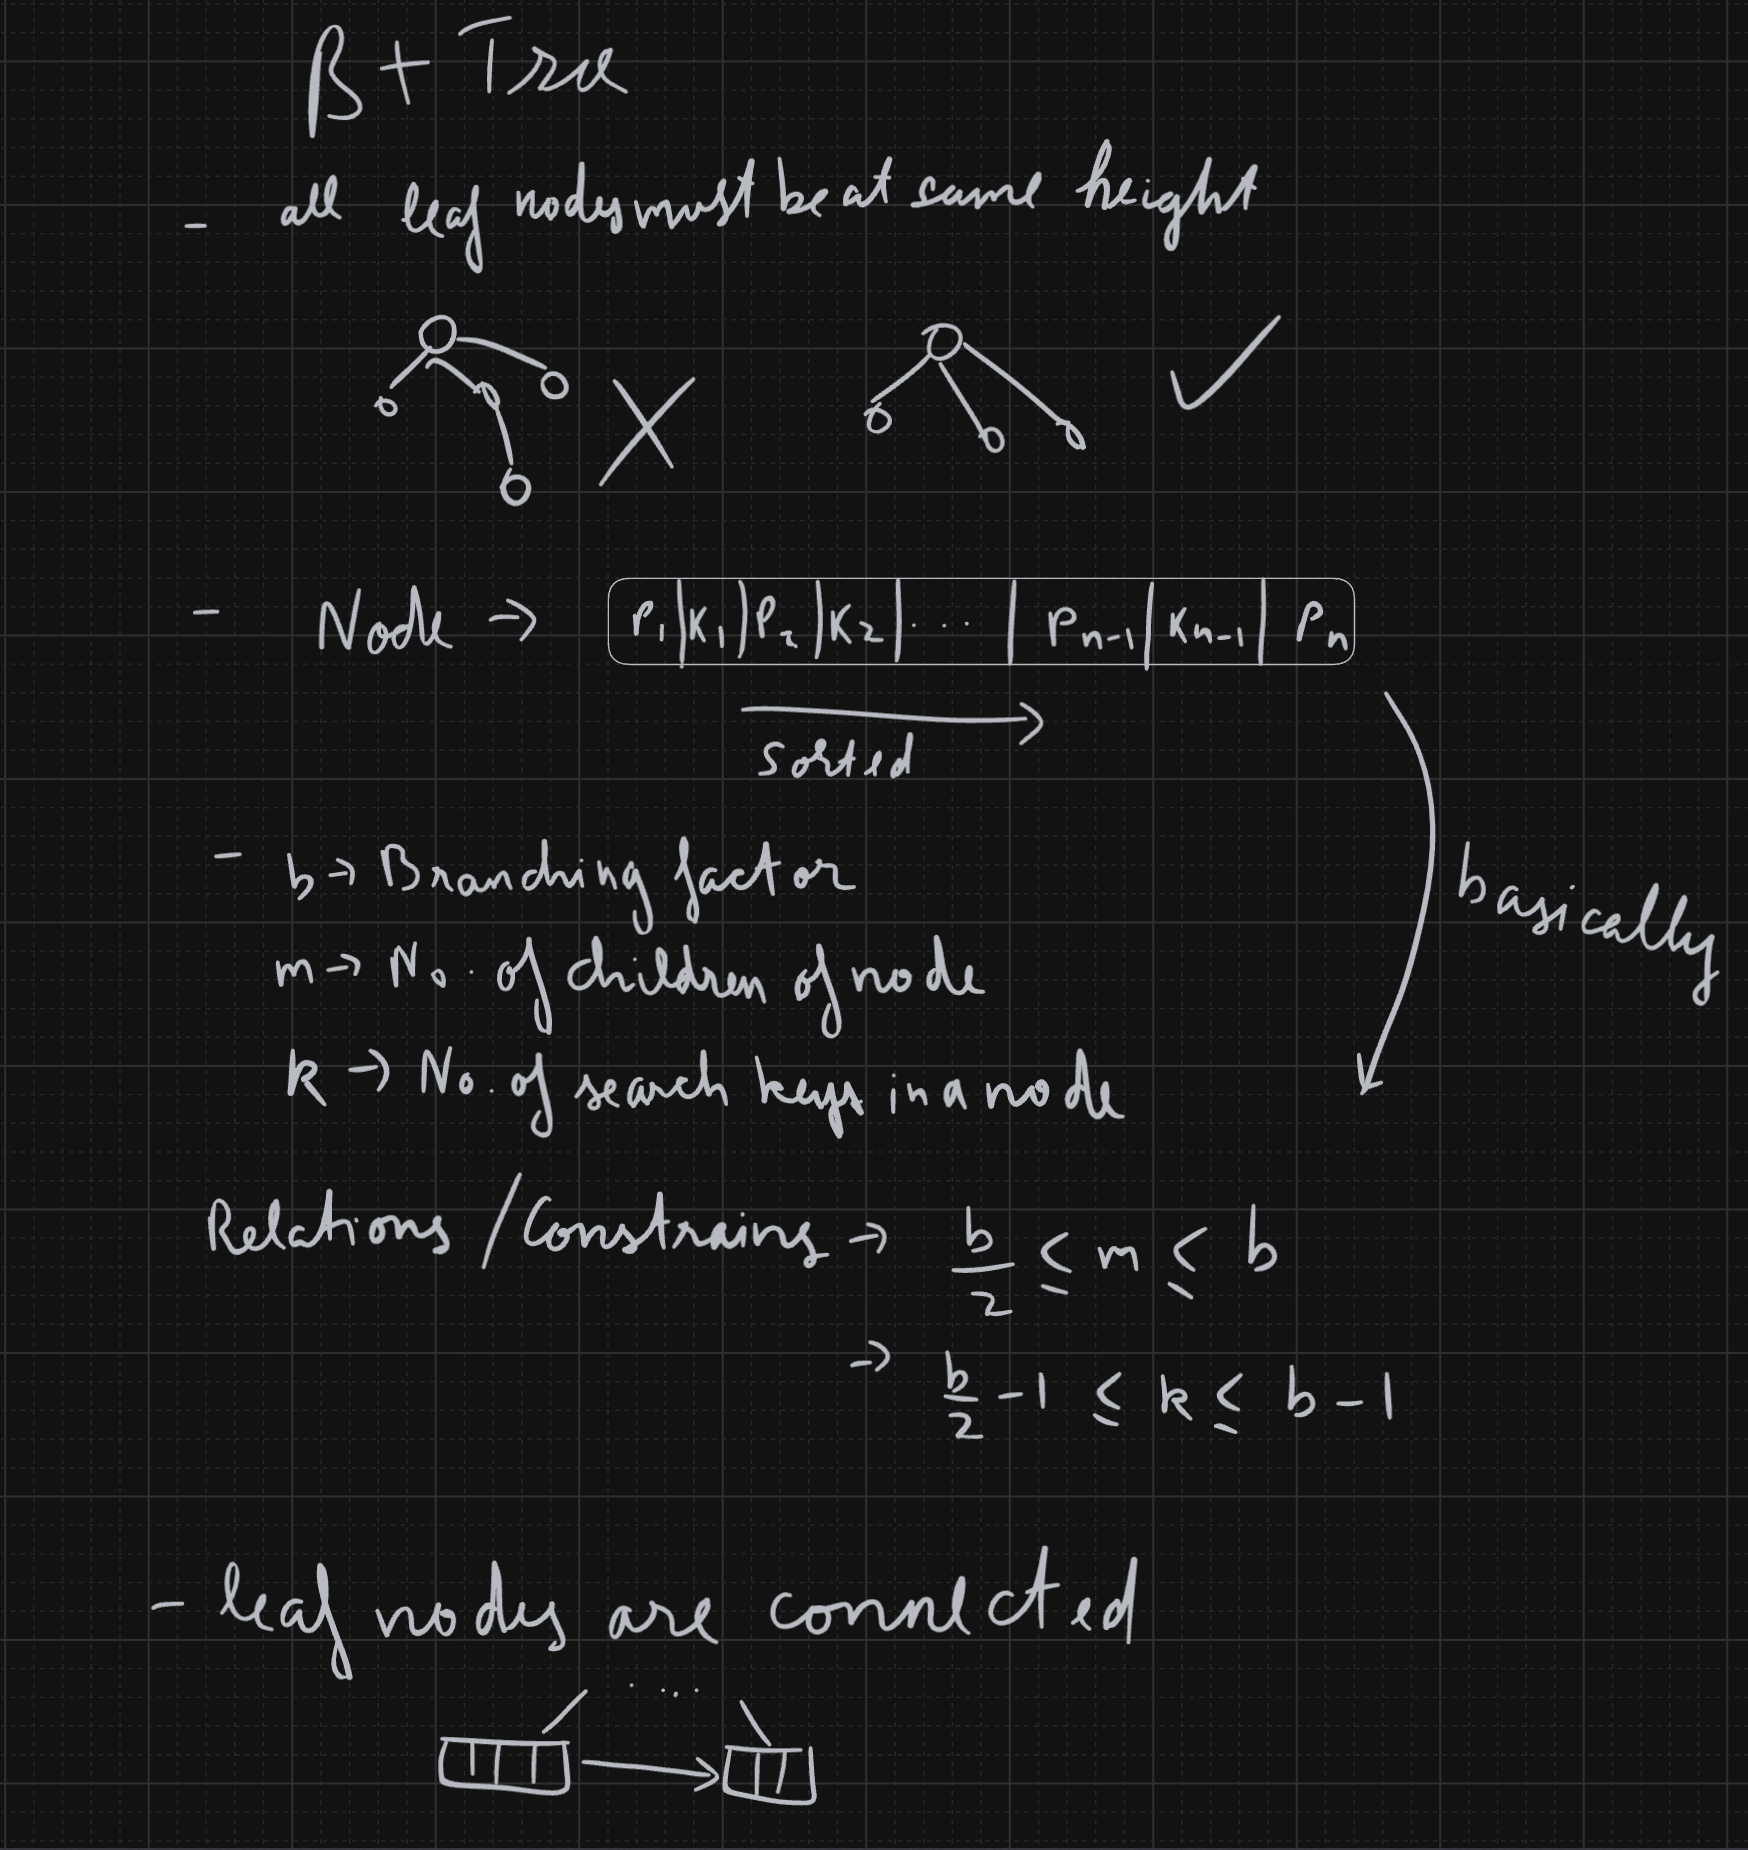 B + Tree
- all leaf nodes must be at same height
- Node → P1 | K1 | P2 | K2 | ... | Pn-1 | Kn-1 | Pn
sorted
- b → Branching factor
basically
m → No. of children of node
k → No. of search keys in a node
Relations / Constrains → b/2 ≤ m ≤ b
→ b/2 - 1 ≤ k ≤ b - 1
- leaf nodes are connected
....